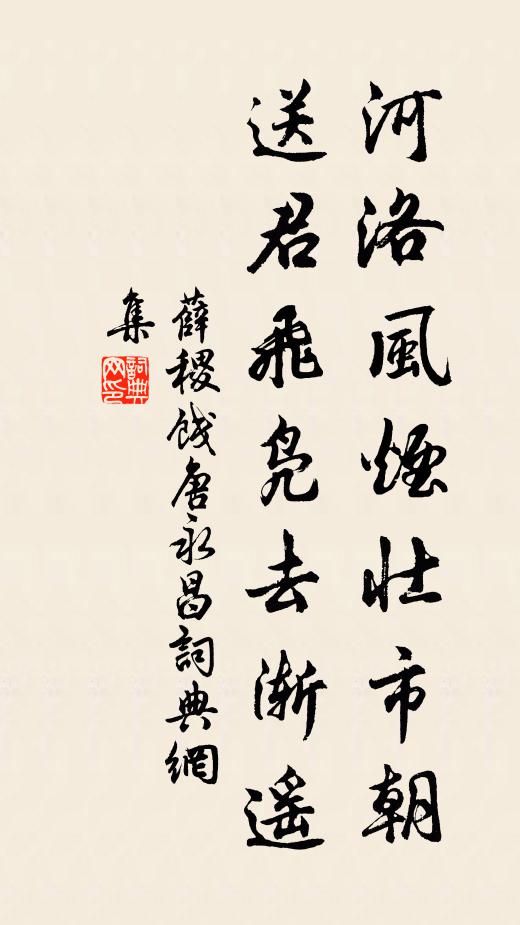 河洛風煙壯市朝
送君飛鳧去漸遙
薛稷餞唐永昌詞典網
集
詞典網印